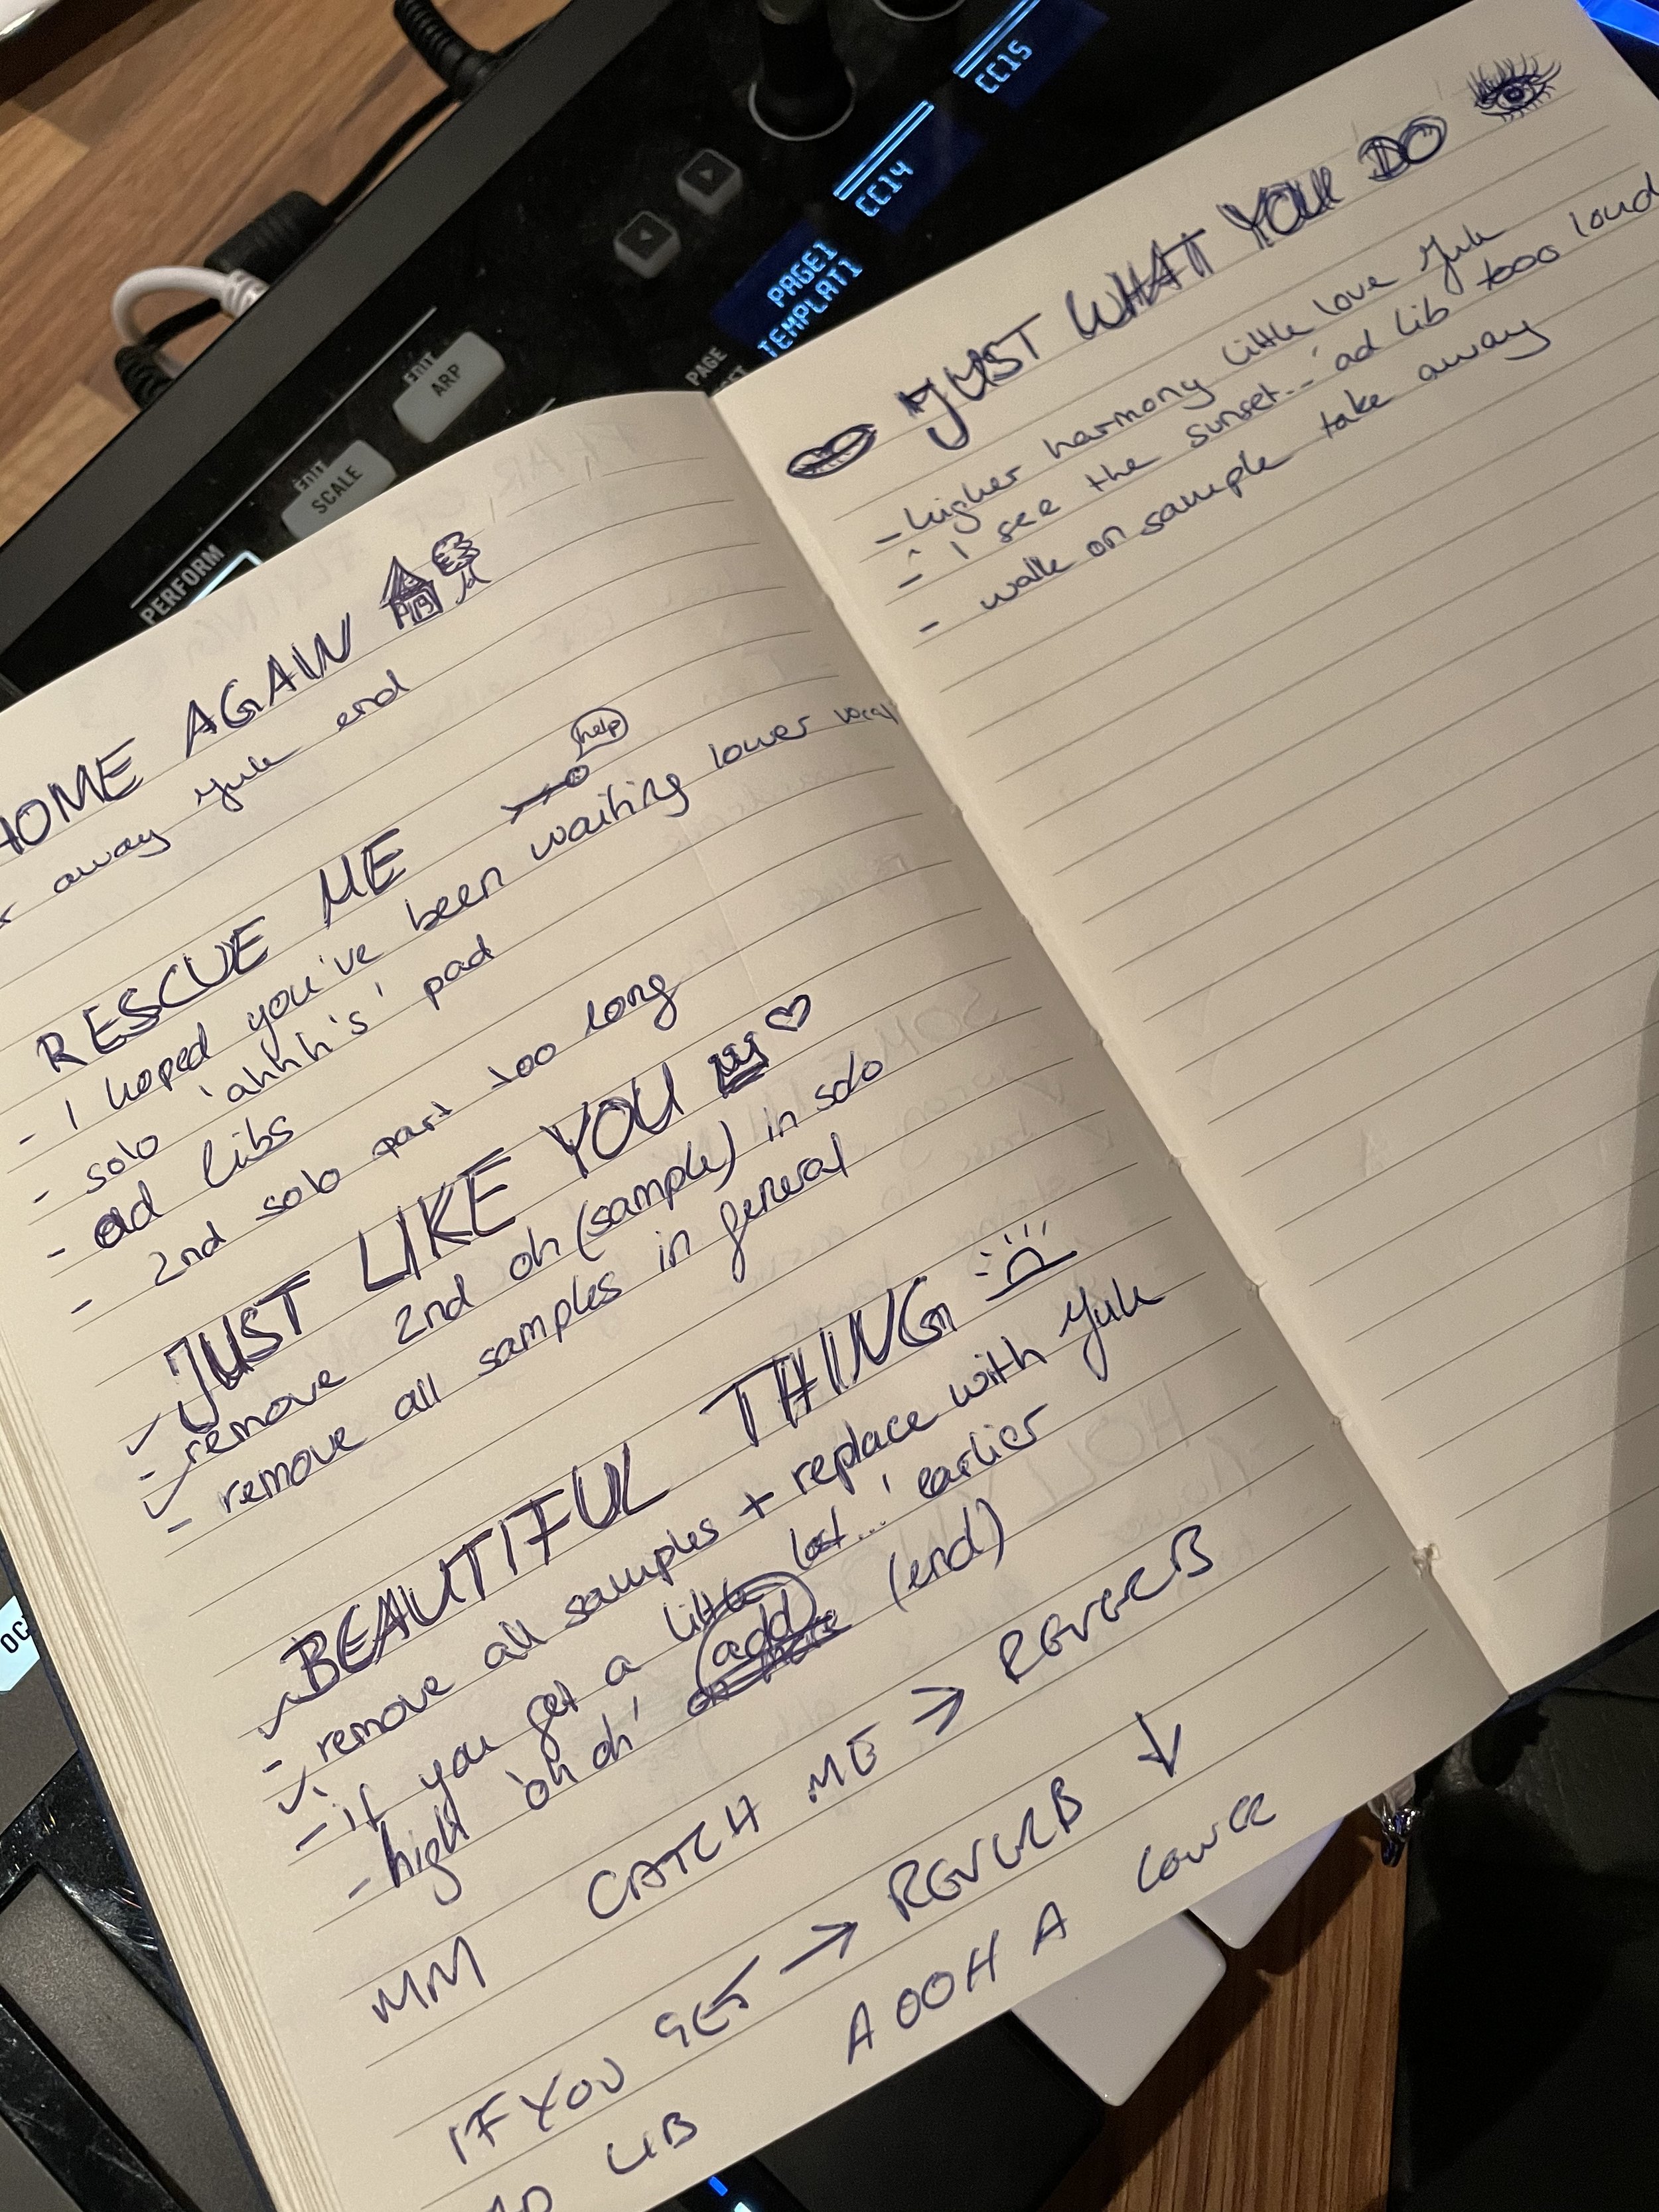 CC15
CC14
PAGE1
TEMPLAT1
PAGE
EDIT
ARP
EDIT
SCALE
PERFORM
HOME AGAIN
away Yuk end
RESCUE ME
help
- I hoped you've been waiting lower vocal
- solo 'ahhh's' pad
- ad libs
- 2nd solo part too long
JUST LIKE YOU
- remove 2nd oh (sample) in solo
- remove all samples in general
BEAUTIFUL THING
- remove all samples + replace with Yuk
- 'if you get a little lost...' earlier
- high 'oh oh' add (end)
MM CATCH ME > REVERB
IF YOU GET → REVERB ↓
AD LIB A OOH A LOWER
JUST WHAT YOU DO
- higher harmony little love Yuk
- 'I see the sunset...' ad lib tooo loud
- walk on sample take away